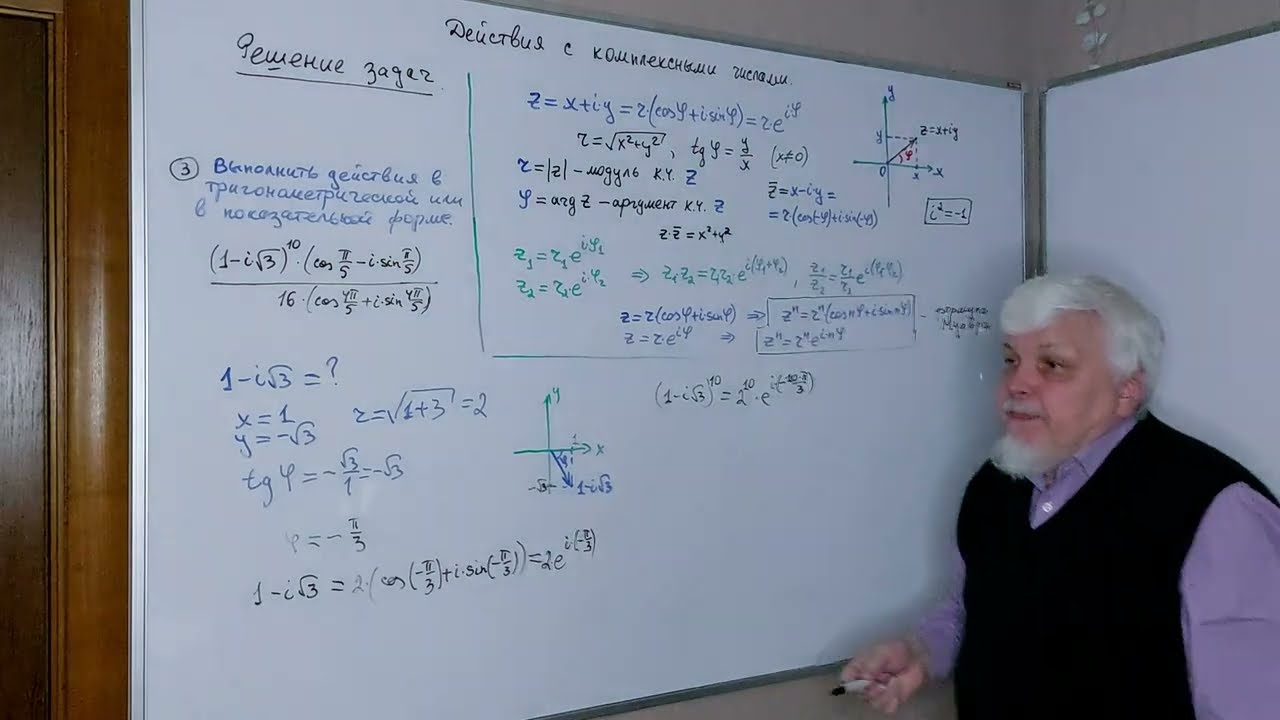 Действия с комплексными числами.
Решение задач.
③ Выполнить действия в
тригонометрической или
в показательной форме.
(1-i√3)^10·(cos π/5 - i·sin π/5)
16·(cos 4π/5 + i·sin 4π/5)
z = x+iy = r·(cosφ+i sinφ) = r·e^{iφ}
r = √(x²+y²), tg φ = y/x (x≠0)
r = |z| – модуль к.ч. z
φ = arg z – аргумент к.ч. z
z·z̄ = x²+y²
y
y
z=x+iy
φ
0
x
x
z̄ = x-iy =
= r(cos(-φ)+i sin(-φ))
i² = -1
z₁ = r₁e^{iφ₁}
z₂ = r₂·e^{iφ₂}
⇒ z₁z₂ = r₁r₂·e^{i(φ₁+φ₂)}, z₁/z₂ = r₁/r₂ e^{i(φ₁-φ₂)}
z = r(cosφ+i sinφ) ⇒ zⁿ = rⁿ(cos nφ + i sin nφ) - формула
Муавра
z = r·e^{iφ} ⇒ zⁿ = rⁿe^{i·nφ}
1-i√3 = ?
x = 1
y = -√3
r = √(1+3) = 2
tg φ = -√3/1 = -√3
φ = -π/3
1-i√3 = 2·(cos(-π/3)+i·sin(-π/3)) = 2e^{i·(-π/3)}
y
1
x
φ
-√3
1-i√3
(1-i√3)^10 = 2^10·e^{i(-10·π/3)}